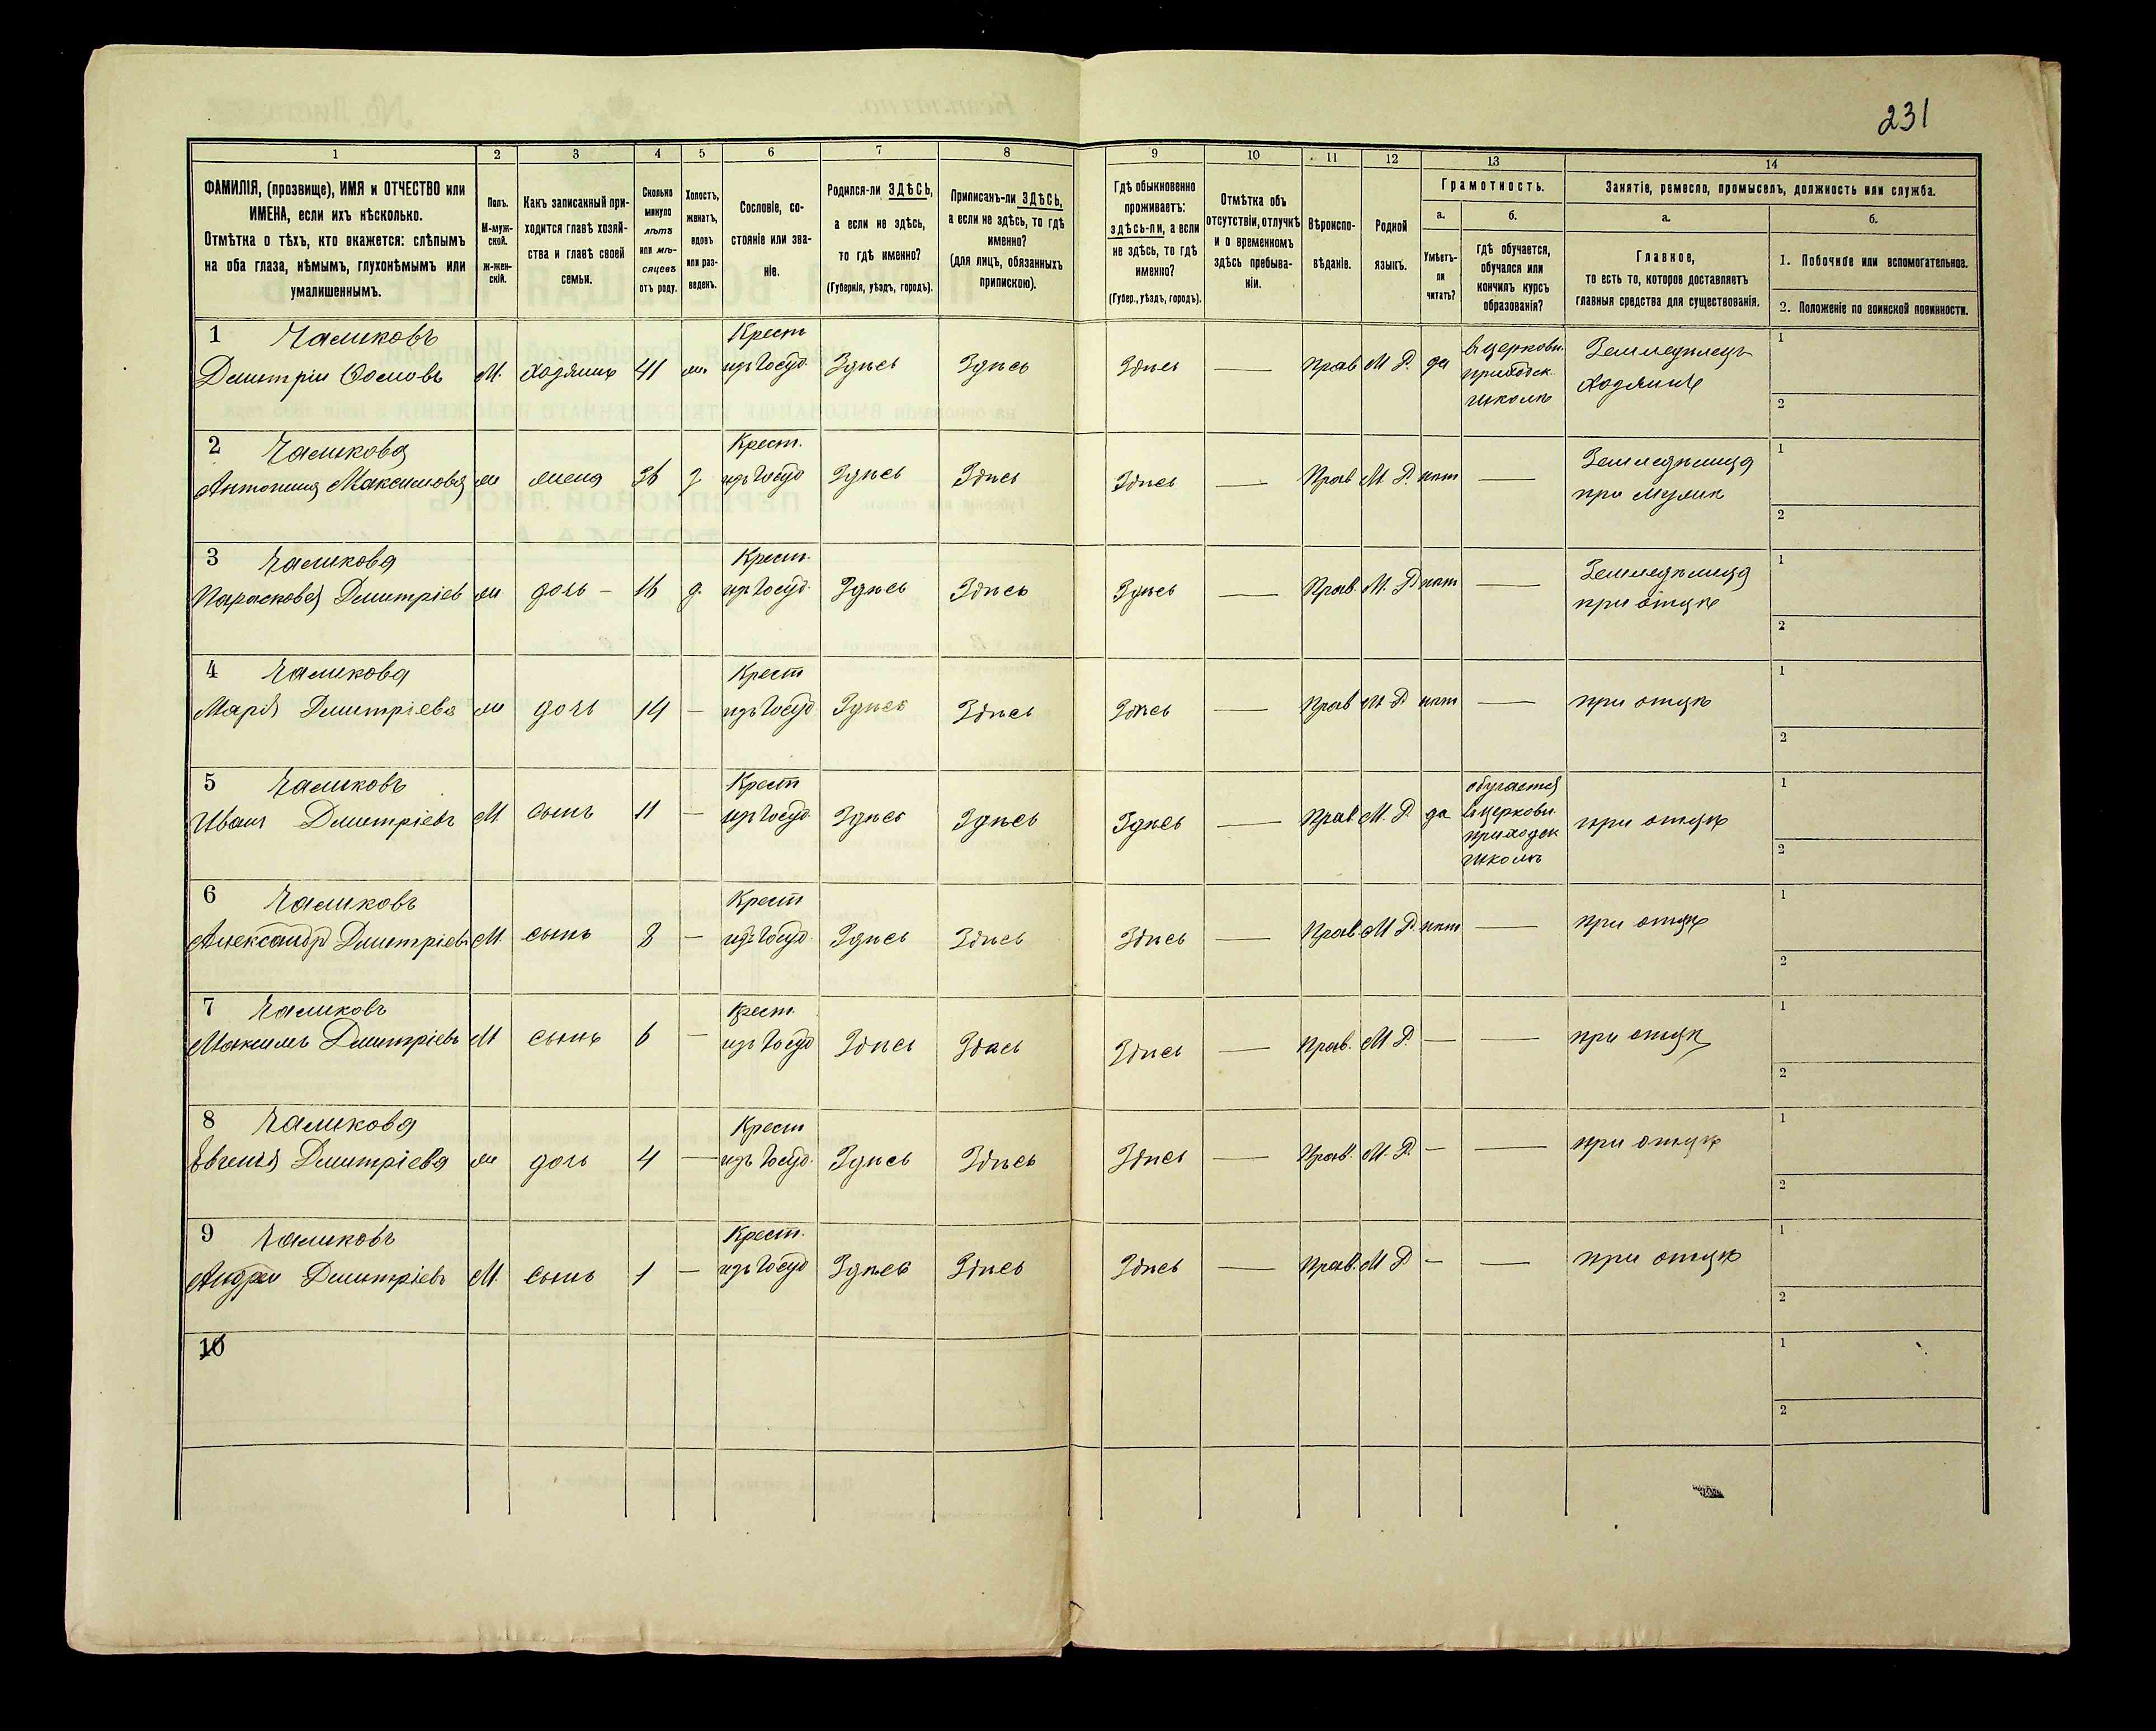 231
1
2
3
4
5
6
7
8
9
10
11
12
13
14
ФАМИЛІЯ, (прозвище), ИМЯ и ОТЧЕСТВО или
ИМЕНА, если ихъ нѣсколько.
Отмѣтка о тѣхъ, кто окажется: слѣпымъ
на оба глаза, нѣмымъ, глухонѣмымъ или
умалишеннымъ.
Полъ.
М-муж-
ской.
ж-жен-
скій.
Какъ записанный при-
ходится главѣ хозяй-
ства и главѣ своей
семьи.
Сколько
минуло
лѣтъ
или мѣ-
сяцевъ
отъ роду.
Холостъ,
женатъ,
вдовъ
или раз-
веденъ.
Сословіе, со-
стояніе или зва-
ніе.
Родился-ли ЗДѢСЬ,
а если не здѣсь,
то гдѣ именно?
(Губернія, уѣздъ, городъ).
Приписанъ-ли ЗДѢСЬ,
а если не здѣсь, то гдѣ
именно?
(для лицъ, обязанныхъ
припискою).
Гдѣ обыкновенно
проживаетъ:
здѣсь-ли, а если
не здѣсь, то гдѣ
именно?
(Губер., уѣздъ, городъ).
Отмѣтка объ
отсутствіи, отлучкѣ
и о временномъ
здѣсь пребыва-
ніи.
Вѣроиспо-
вѣданіе.
Родной
языкъ.
Грамотность.
а.
Умѣетъ-
ли
читать?
б.
Гдѣ обучается,
обучался или
кончилъ курсъ
образованія?
Занятіе, ремесло, промыселъ, должность или служба.
а.
Главное,
то есть то, которое доставляетъ
главныя средства для существованія.
б.
1. Побочное или вспомогательное.
2. Положеніе по воинской повинности.
1 Чаликовъ Крест в церковн. Земледѣлецъ 1
Дмитрій М. хозяинъ 41 ж. изъ Госуд. Здѣсь Здѣсь Здѣсь — Прав М Р. да приходск. хозяинъ
школѣ 2
2 Чаликова Крест. Земледѣлица 1
Антонина Максимова ж жена 36 з изъ Госуд Здѣсь Здѣсь Здѣсь — Прав М. Р. нѣт — при мужѣ
2
3 Чаликова Крест. Земледѣлица 1
Парасковья Дмитріев ж дочь – 16 д. изъ Госуд. Здѣсь Здѣсь Здѣсь — Прав. М. Р нѣт — при отцѣ
2
4 Чаликова Крест 1
Марія Дмитріева ж дочь 14 – изъ Госуд. Здѣсь Здѣсь Здѣсь — Прав М Р нѣт — при отцѣ
2
5 Чаликовъ Крест обучается 1
Иванъ Дмитріевъ М. сынъ 11 – изъ Госуд. Здѣсь Здѣсь Здѣсь — Прав. М. Р. да в церковн. при отцѣ
приходск
школѣ 2
6 Чаликовъ Крест 1
Александр Дмитріевъ М. сынъ 8 – изъ Госуд. Здѣсь Здѣсь Здѣсь — Прав М Р. нѣт — при отцѣ
2
7 Чаликовъ Крест. 1
Максимъ Дмитріевъ М сынъ 6 – изъ Госуд Здѣсь Здѣсь Здѣсь — Прав. М Р. – — при отцѣ
2
8 Чаликова Крест 1
Евгенія Дмитріева ж дочь 4 — изъ Госуд. Здѣсь Здѣсь Здѣсь — Прав. М. Р. – — при отцѣ
2
9 Чаликовъ Крест. 1
Андрей Дмитріевъ М. сынъ 1 – изъ Госуд Здѣсь Здѣсь Здѣсь — Прав. М Р – — при отцѣ
2
10 1
2